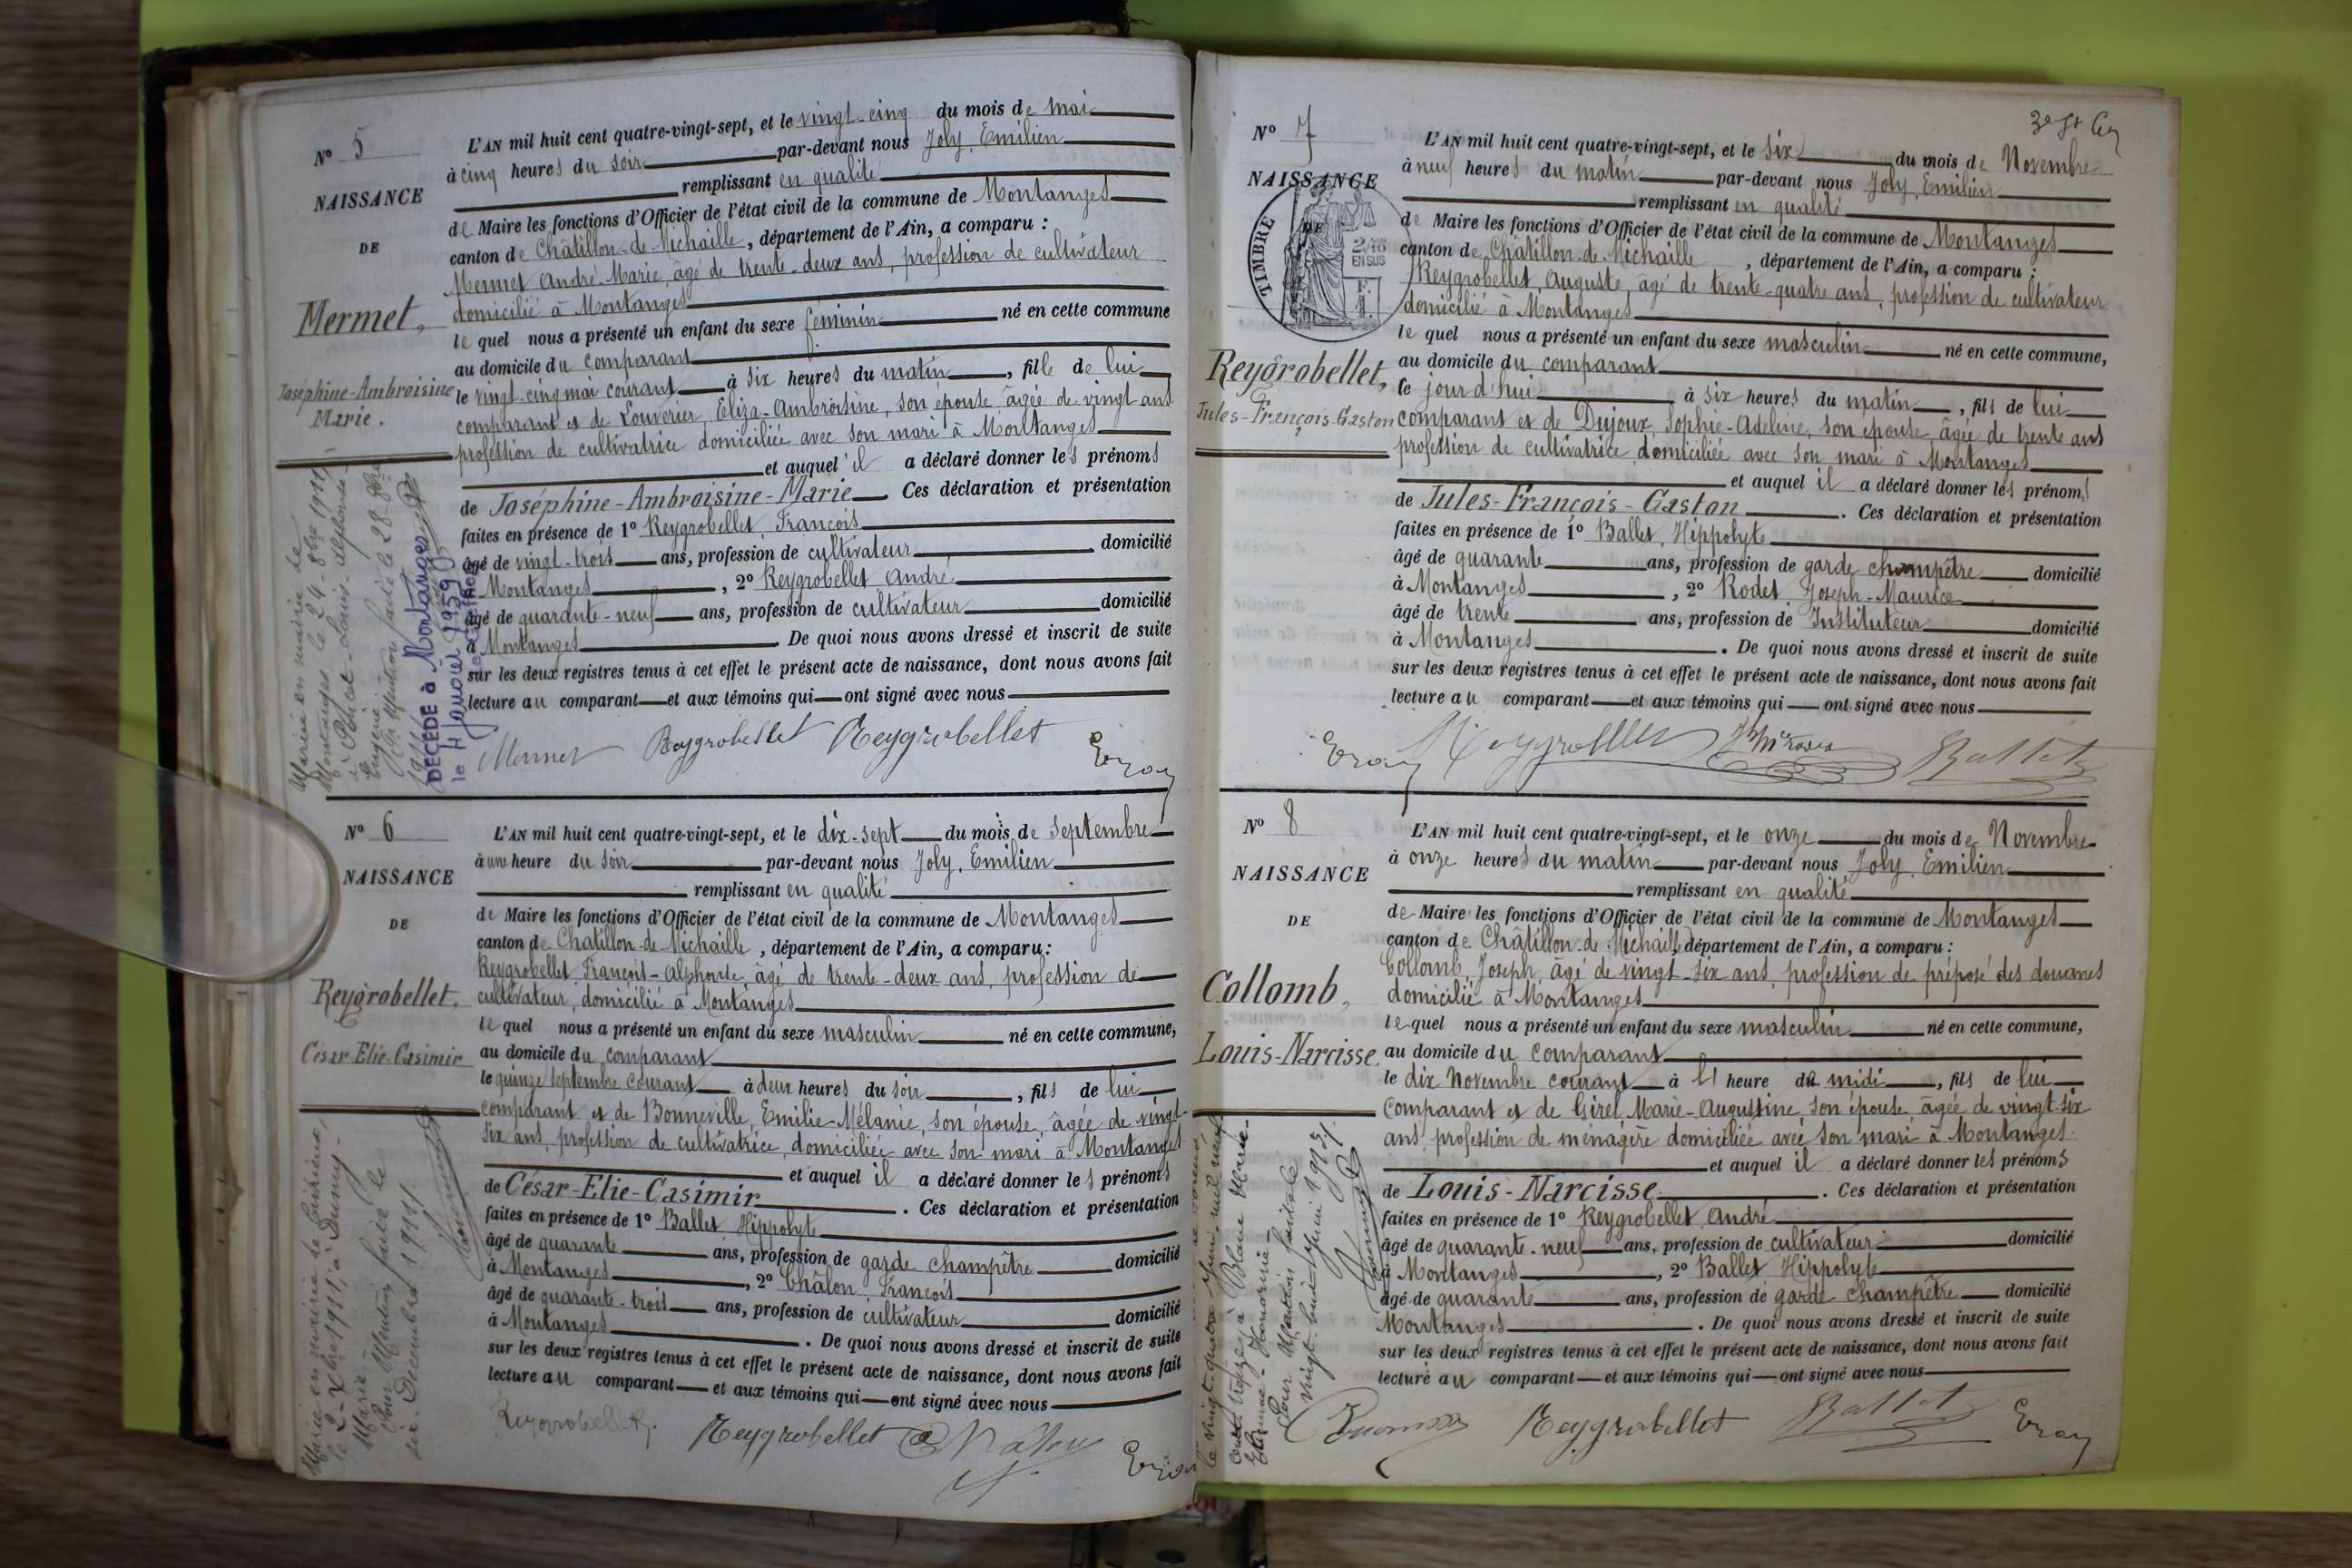 N° 5
NAISSANCE
DE
Mermet,
Joséphine-Ambroisine
Marie.
L'AN mil huit cent quatre-vingt-sept, et le vingt-cinq du mois de mai
à cinq heures du soir par-devant nous Joly, Emilien
remplissant en qualité
de Maire les fonctions d'Officier de l'état civil de la commune de Montanges
canton de Châtillon-de-Michaille, département de l'Ain, a comparu :
Mermet André-Marie, âgé de trente-deux ans, profession de cultivateur
domicilié à Montanges
le quel nous a présenté un enfant du sexe féminin né en cette commune
au domicile du comparant
le vingt-cinq mai courant à six heures du matin, fille de lui
comparant et de Louvrier, Eliza-Ambroisine, son épouse âgée de vingt ans
profession de cultivatrice domiciliée avec son mari à Montanges
et auquel il a déclaré donner les prénoms
de Joséphine-Ambroisine-Marie. Ces déclaration et présentation
faites en présence de 1° Reygrobellet, François
âgé de vingt-trois ans, profession de cultivateur domicilié
à Montanges, 2° Reygrobellet André
âgé de quarante-neuf ans, profession de cultivateur domicilié
à Montanges. De quoi nous avons dressé et inscrit de suite
sur les deux registres tenus à cet effet le présent acte de naissance, dont nous avons fait
lecture au comparant et aux témoins qui ont signé avec nous
Mermet Reygrobellet Reygrobellet
Mariée en mairie de
Montanges le 24-8bre 1911
à
Eugène
DÉCÉDÉ à Montanges
le 4 Janvier 1959
N° 6
NAISSANCE
DE
Reygrobellet,
César-Elie-Casimir
L'AN mil huit cent quatre-vingt-sept, et le dix-sept du mois de Septembre
à une heure du soir par-devant nous Joly, Emilien
remplissant en qualité
de Maire les fonctions d'Officier de l'état civil de la commune de Montanges
canton de Chatillon-de-Michaille, département de l'Ain, a comparu :
Reygrobellet François-Alphonse, âgé de trente-deux ans, profession de
cultivateur, domicilié à Montanges
le quel nous a présenté un enfant du sexe masculin né en cette commune,
au domicile du comparant
le quinze septembre courant à deux heures du soir, fils de lui
comparant et de Bonneville, Emilie-Mélanie, son épouse, âgée de vingt-
six ans, profession de cultivatrice, domiciliée avec son mari à Montanges
et auquel il a déclaré donner les prénoms
de César-Elie-Casimir. Ces déclaration et présentation
faites en présence de 1° Ballet, Hippolyte
âgé de quarante ans, profession de garde champêtre domicilié
à Montanges, 2° Châlon, François
âgé de quarante-trois ans, profession de cultivateur domicilié
à Montanges. De quoi nous avons dressé et inscrit de suite
sur les deux registres tenus à cet effet le présent acte de naissance, dont nous avons fait
lecture au comparant et aux témoins qui ont signé avec nous
Reygrobellet. Reygrobellet Châlon
Marié en mairie de
le 2-Xbre 1911, à
Marie
Pour Mention faite le
six Décembre 1911.
3e
N° 7
NAISSANCE
DE
TIMBRE
2/10
EN SUS
Reygrobellet,
Jules-François-Gaston
L'AN mil huit cent quatre-vingt-sept, et le six du mois de Novembre
à neuf heures du matin par-devant nous Joly, Emilien
remplissant en qualité
de Maire les fonctions d'Officier de l'état civil de la commune de Montanges
canton de Châtillon-de-Michaille, département de l'Ain, a comparu :
Reygrobellet, Auguste, âgé de trente-quatre ans, profession de cultivateur
domicilié à Montanges
le quel nous a présenté un enfant du sexe masculin né en cette commune,
au domicile du comparant
le jourd'hui à six heures du matin, fils de lui
comparant et de Dujoux, Sophie-Adeline, son épouse âgée de trente ans
profession de cultivatrice, domiciliée avec son mari à Montanges
et auquel il a déclaré donner les prénoms
de Jules-François-Gaston. Ces déclaration et présentation
faites en présence de 1° Ballet, Hippolyte
âgé de quarante ans, profession de garde champêtre domicilié
à Montanges, 2° Rodet Joseph-Maurice
âgé de trente ans, profession de Instituteur domicilié
à Montanges. De quoi nous avons dressé et inscrit de suite
sur les deux registres tenus à cet effet le présent acte de naissance, dont nous avons fait
lecture au comparant et aux témoins qui ont signé avec nous
Reygrobellet Ballet
N° 8
NAISSANCE
DE
Collomb,
Louis-Narcisse.
L'AN mil huit cent quatre-vingt-sept, et le onze du mois de Novembre
à onze heures du matin par-devant nous Joly, Emilien
remplissant en qualité
de Maire les fonctions d'Officier de l'état civil de la commune de Montanges
canton de Châtillon-de-Michaille, département de l'Ain, a comparu :
Collomb, Joseph, âgé de vingt-six ans, profession de préposé des douanes
domicilié à Montanges
le quel nous a présenté un enfant du sexe masculin né en cette commune,
au domicile du comparant
le dix Novembre courant à heure de midi, fils de lui
comparant et de Girel Marie-Augustine, son épouse âgée de vingt-six
ans, profession de ménagère domiciliée avec son mari à Montanges.
et auquel il a déclaré donner les prénoms
de Louis-Narcisse. Ces déclaration et présentation
faites en présence de 1° Reygrobellet, André
âgé de quarante-neuf ans, profession de cultivateur domicilié
à Montanges, 2° Ballet Hippolyte
âgé de quarante ans, profession de garde champêtre domicilié
Montanges. De quoi nous avons dressé et inscrit de suite
sur les deux registres tenus à cet effet le présent acte de naissance, dont nous avons fait
lecture au comparant et aux témoins qui ont signé avec nous
Reygrobellet Ballet
le vingt-quatre Juin mil neuf
cent treize, à Blanc Marie-
Honorine
Pour Mention faite le
vingt-huit Juin 1913.